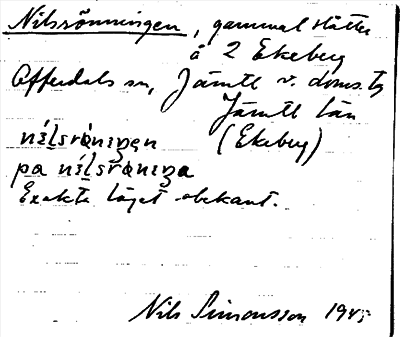 Nilsrönningen, gammal slåtter
å 2 Ekeberg
Offerdals sn, Jämtl v. doms. tg
Jämtl län
nilsrǿniŋen (Ekeberg)
pa nilsrǿniŋa
Exakta läget obekant.
Nils Simonsson 1945